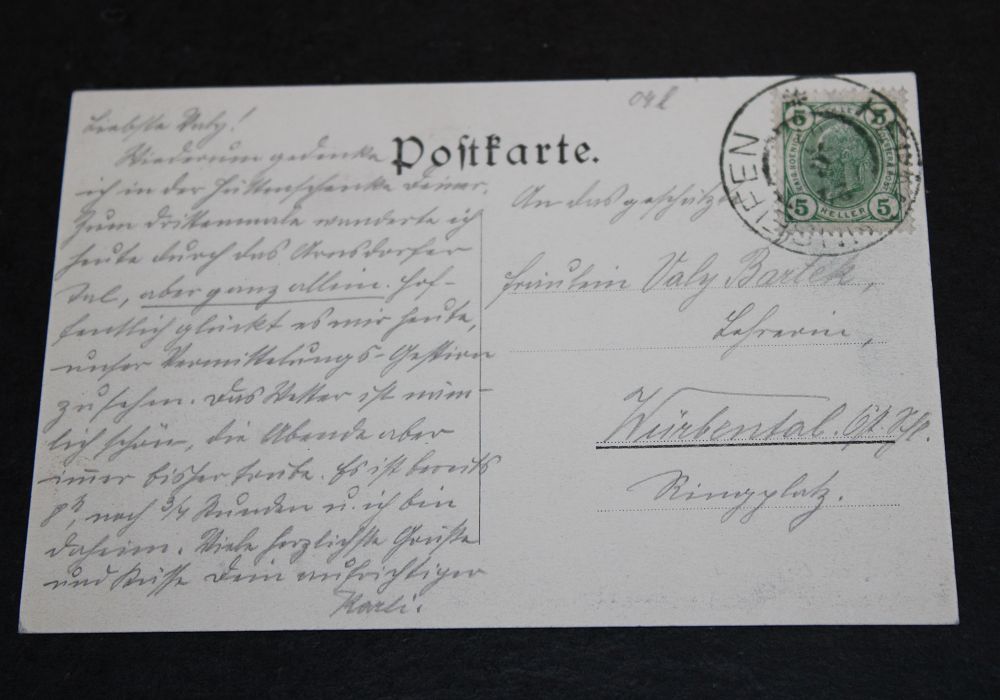 Postkarte.
Liebste Valy!
Wiederum gedenke
ich in der Hüttenschenke Deiner.
Zum drittenmale wanderte ich
heute durch das Arnsdorfer
Tal, aber ganz allein. Hof-
fentlich glückt es mir heute,
unser Vermittelungs-Gestirn
zu sehen. Das Wetter ist näm-
lich schön, die Abende aber
immer bisher trübe. Es ist bereits
8h, noch 3/4 Stunden u. ich bin
daheim. Viele herzlichste Grüße
und Küsse Dein aufrichtiger
Karli.
An das geschätzte
Fräulein Valy Bartek,
Lehrerin,
Würbental. Öst. Schl.
Ringplatz.
5 5
5 HELLER 5